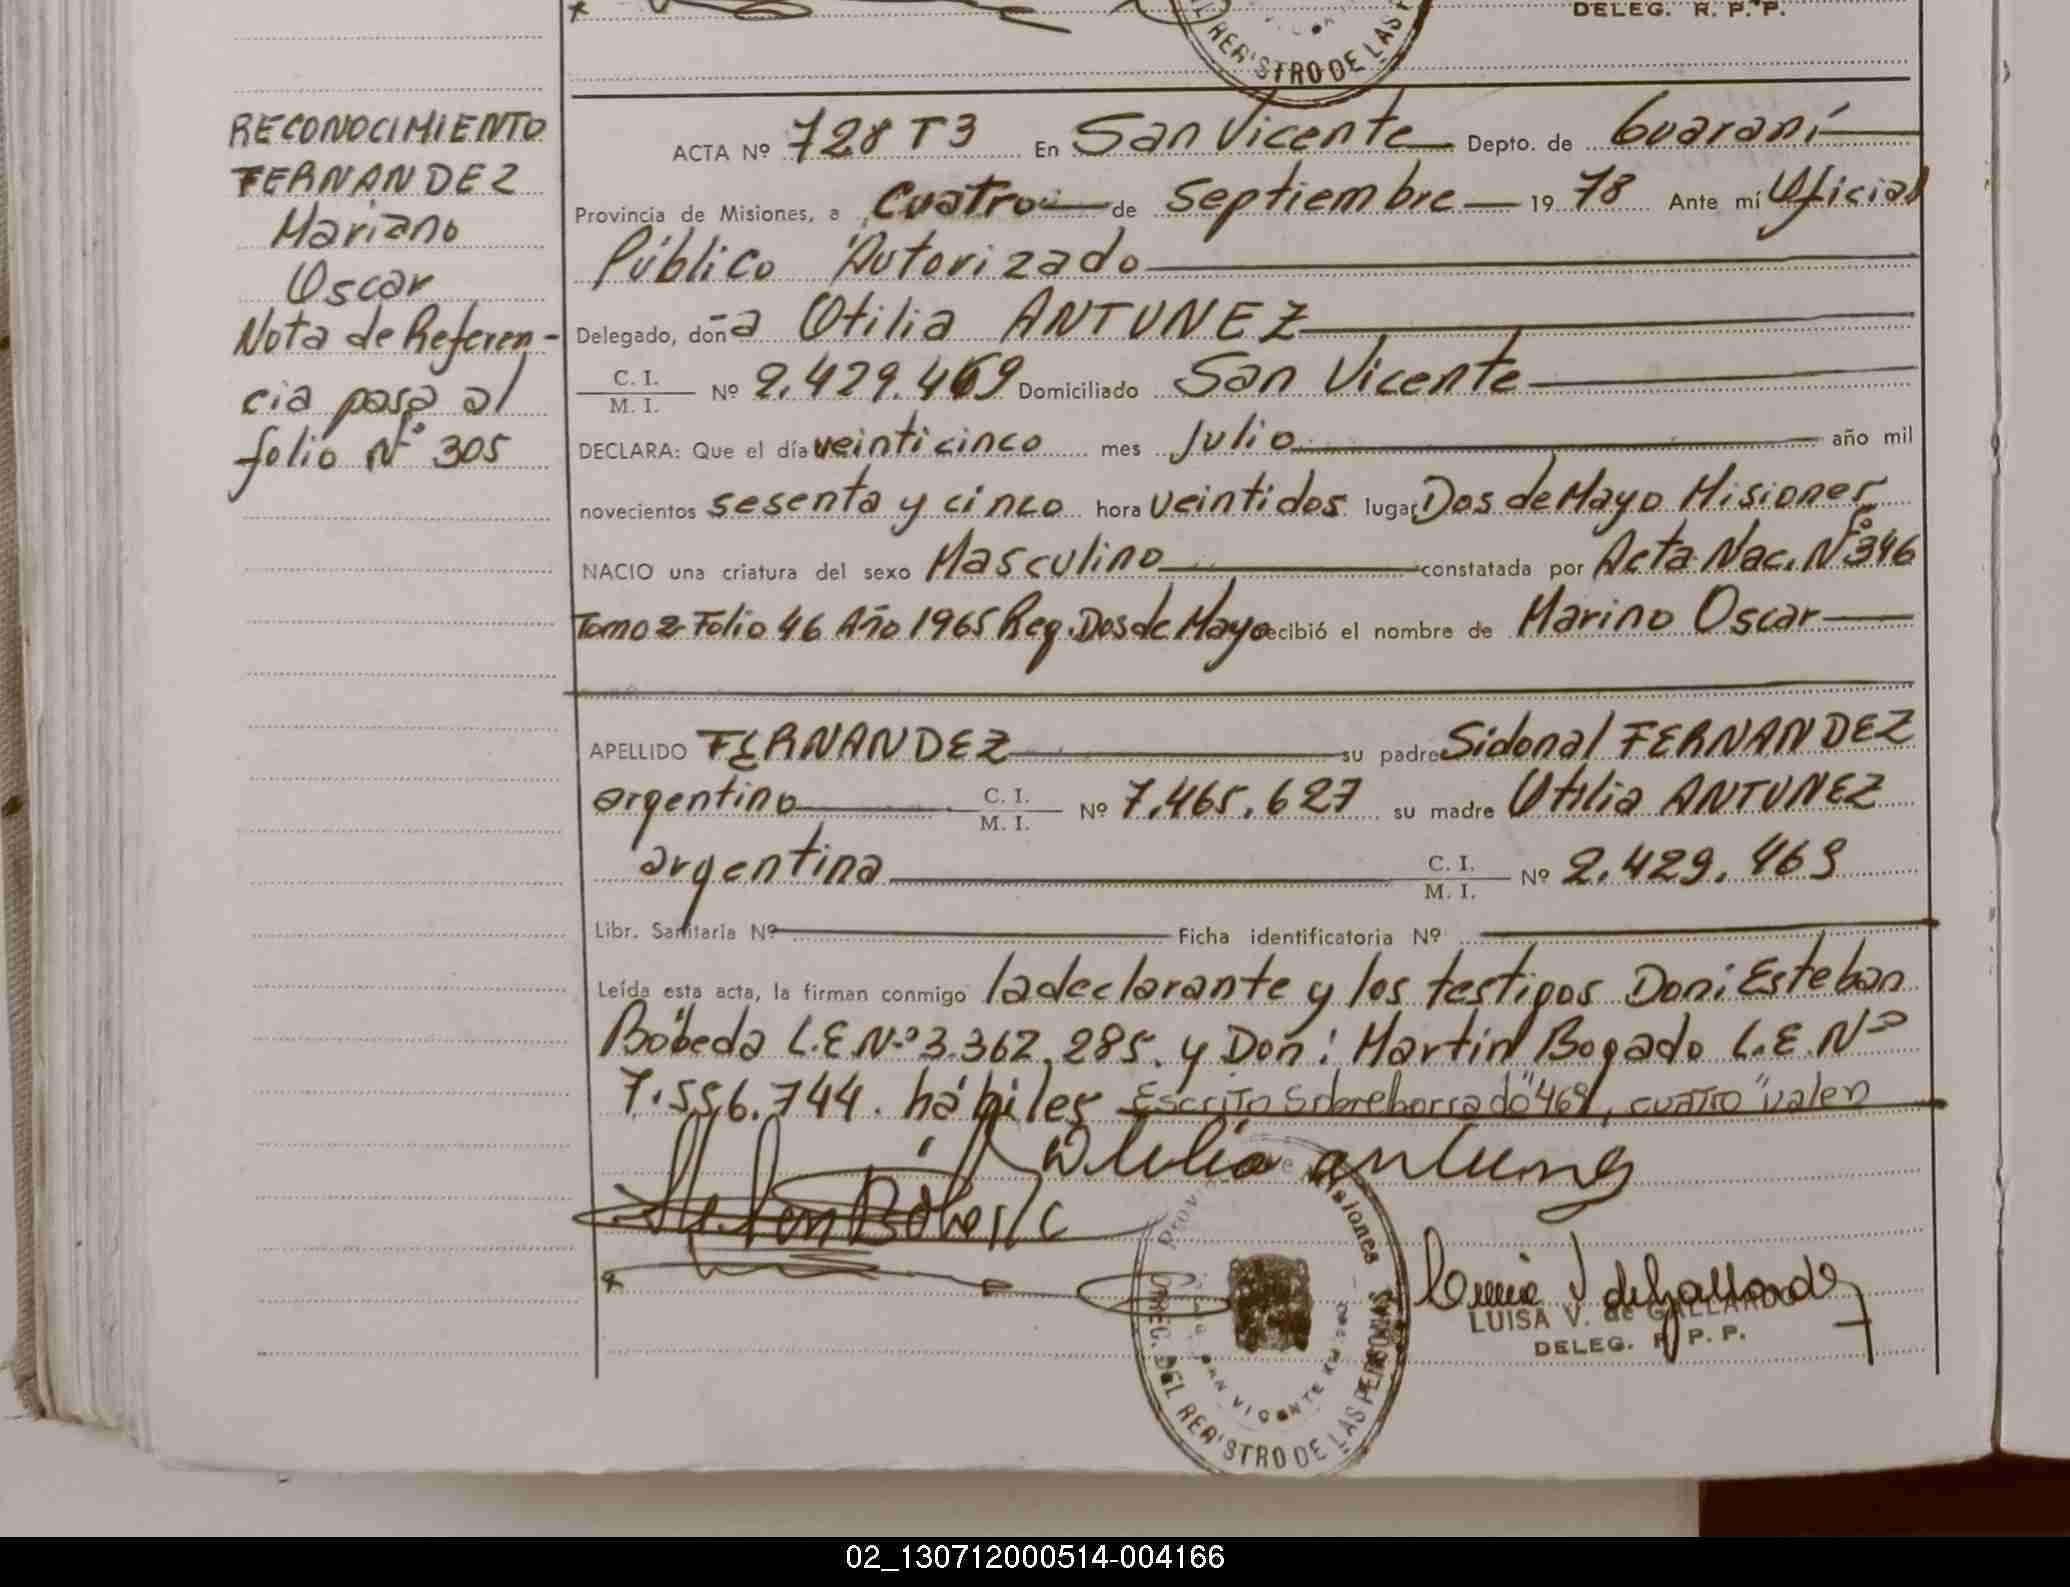 DELEG. R. P. P.
REG'STRO DE LAS
RECONOCIMIENTO
FERNANDEZ
Mariano
Oscar
Nota de Referen-
cia pasa al
folio Nº 305
ACTA Nº 728 T3 En San Vicente Depto. de Guaraní
Provincia de Misiones, a cuatro de Septiembre 1978 Ante mí Oficial
Público Autorizado
Delegado, don-a Otilia ANTUNEZ
C. I. / M. I. Nº 2.429.469 Domiciliado San Vicente
DECLARA: Que el día veinticinco mes Julio año mil
novecientos sesenta y cinco hora veintidos lugar Dos de Mayo Misiones
NACIO una criatura del sexo Masculino constatada por Acta Nac. Nº 346
Tomo 2 Folio 46 Año 1965 Reg. Dos de Mayo recibió el nombre de Marino Oscar
APELLIDO FERNANDEZ su padre Sidonal FERNANDEZ
argentino C. I. / M. I. Nº 7.465.627 su madre Otilia ANTUNEZ
argentina C. I. / M. I. Nº 2.429.469
Libr. Sanitaria Nº Ficha identificatoria Nº
Leída esta acta, la firman conmigo la declarante y los testigos Don: Esteban
Bóbeda L.E.Nº 3.362.285. y Don: Martin Bogado L.E.Nº
7.556.744. hábiles Escrito Sobreborrado "469, cuatro" valen
Otilia antunes
Provincia de Misiones
DIREC. DEL REG'STRO DE LAS PERSONAS
SAN VICENTE
LUISA V. de GALLARDO
DELEG. R. P. P.
02_130712000514-004166